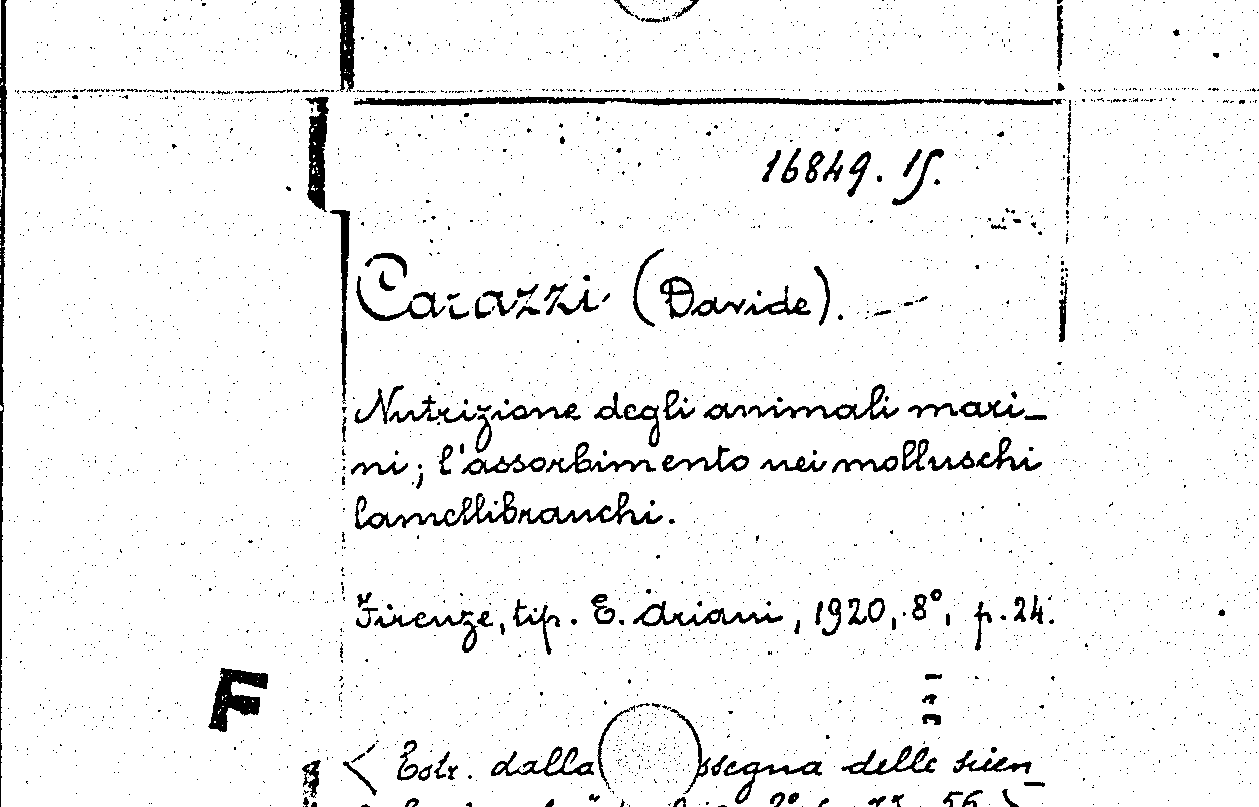 16849. 15.
Carazzi (Davide).
Nutrizione degli animali mari_
ni; l'assorbimento nei molluschi
lamellibranchi.
Firenze, tip. E. Ariani, 1920, 8°, p. 24.
F
< Estr. dalla ssegna delle scien_